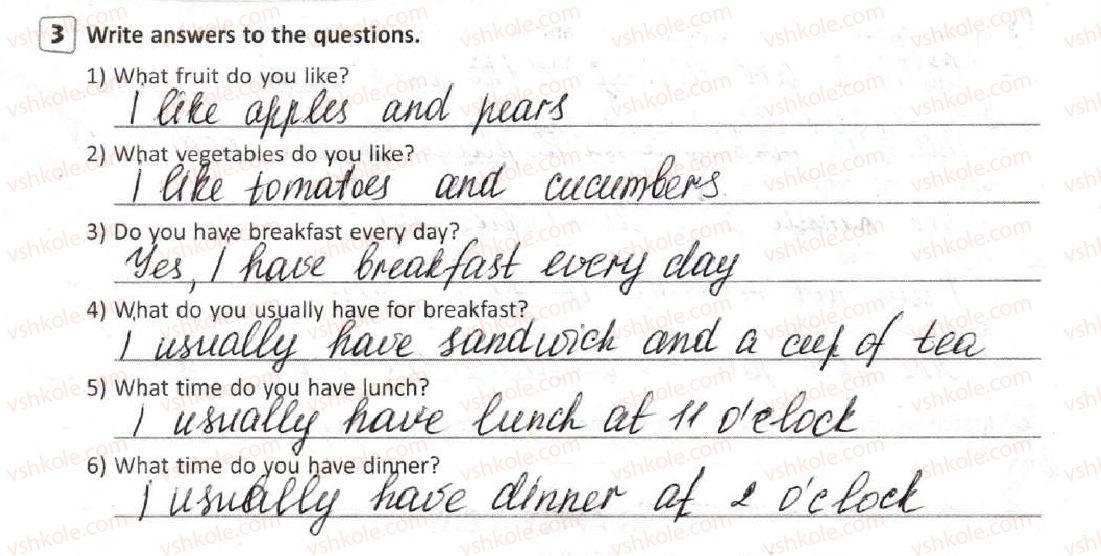 3 Write answers to the questions.
1) What fruit do you like?
I like apples and pears
2) What vegetables do you like?
I like tomatoes and cucumbers.
3) Do you have breakfast every day?
Yes, I have breakfast every day
4) What do you usually have for breakfast?
I usually have sandwich and a cup of tea
5) What time do you have lunch?
I usually have lunch at 11 o'clock
6) What time do you have dinner?
I usually have dinner at 2 o'clock
vshkole.com